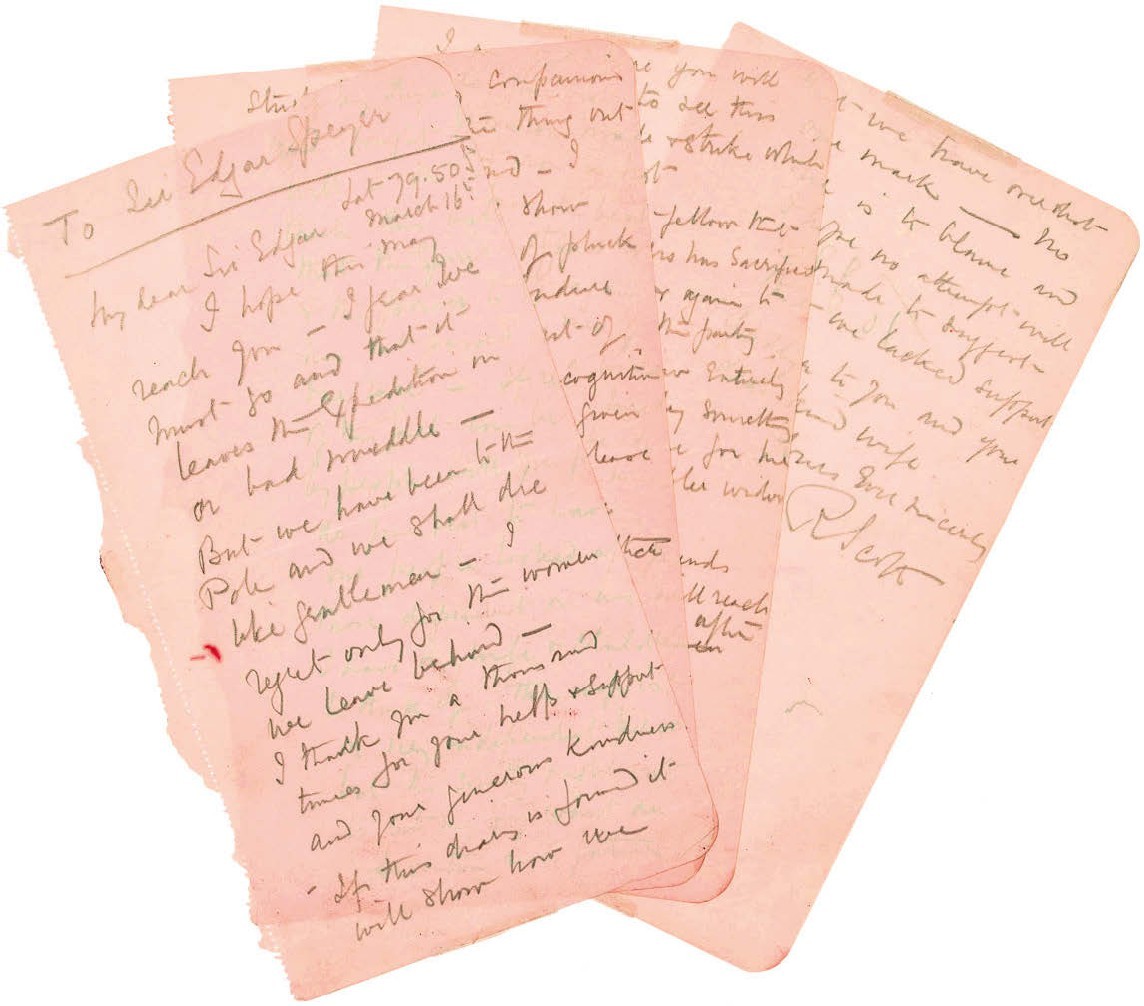 To Sir Edgar Speyer
Lat 79.50
March 16
My dear Sir Edgar
I hope this may
reach you – I fear we
must go and that it
leaves the Expedition in
or bad muddle –
But we have been to the
Pole and we shall die
like gentlemen – I
regret only for the women
we leave behind –
I thank you a thousand
times for your help & support
and your generous kindness
– If this diary is found it
will show how we
companions
thing out
nd – I
show
of pluck
ndure
ut of
cognition
given
leave
that
you will
to see this
& strike which
fellow that
has sacrificed
again to
the party
entirely
something
for his
widow
ends
will reach
after
we have overshot
mark — No
is to blame and
no attempt will
made to suggest
we lacked support
to you and your
kind wife
Yours Ever sincerely
R Scott